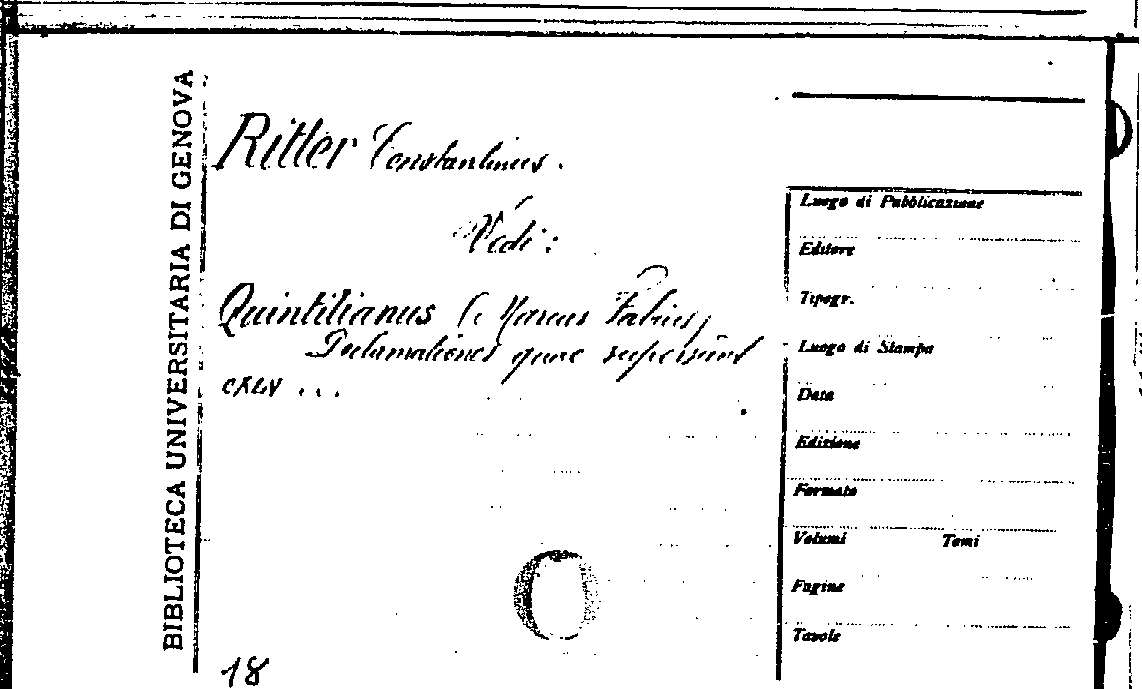 BIBLIOTECA UNIVERSITARIA DI GENOVA
Ritter Constantinus.
Vedi:
Quintilianus (Marcus Fabius)
Declamationes quae supersunt
CXLV ...
18
Luogo di Pubblicazione
Editore
Tipogr.
Luogo di Stampa
Data
Edizione
Formato
Volumi Tomi
Pagine
Tavole